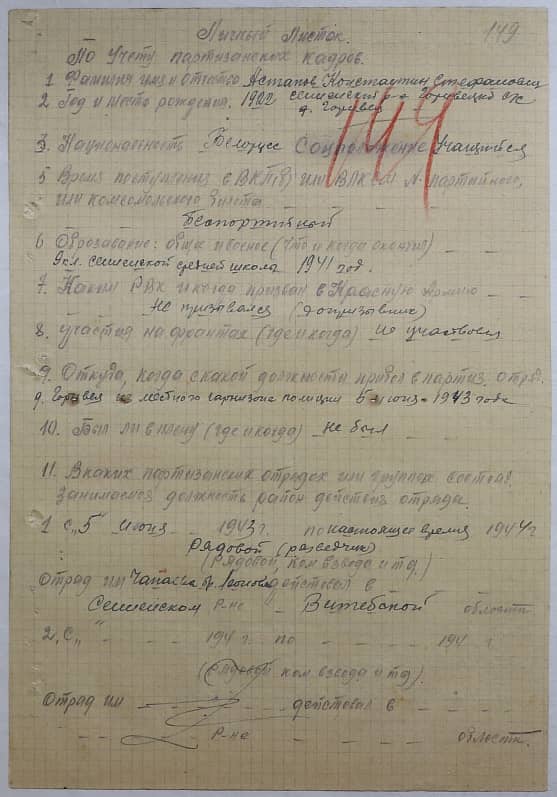 149
Личный Листок.
По Учету партизанских кадров.
149
1 Фамилия имя и Отчество Астапов Константин Стефанович
2 Год и место рождения. 1922 Сенненский р-н
д. Горивец
3. Национальность Белорусс Соцположение Учащийся
5 Время поступления в ВКП(б) или ВЛКСМ № партийного,
или комсомольского билета
Беспортийный
6 Образование: общее и военное (Что и когда окончил)
9 кл. Сенненской средней школы 1941 год.
7. Каким РВК и когда призван в Красную Армию
Не призывался (допризывник)
8. Участия на фронтах (где и когда) не участвовал
9. Откуда, когда с какой должности пришел в партиз. отряд.
д. Горивец из местного гарнизона полиции 5 июня 1943 года
10. Был ли в плену (где и когда) не был
11. В каких партизанских отрядах или группах состоял.
Занимаемая должность район действия отряда.
1 с "5" июня 1943 г. по настоящее время 1944 г
Рядовой (разведчик)
(Рядовой, ком взвода и тд.)
Отряд им Чапаева бр. Леонова действовал в
Сенненском р-не Витебской области
2. С " 194 г. по 194 г
(Рядовой ком взвода и тд).
Отряд им действовал в
Р-не области.